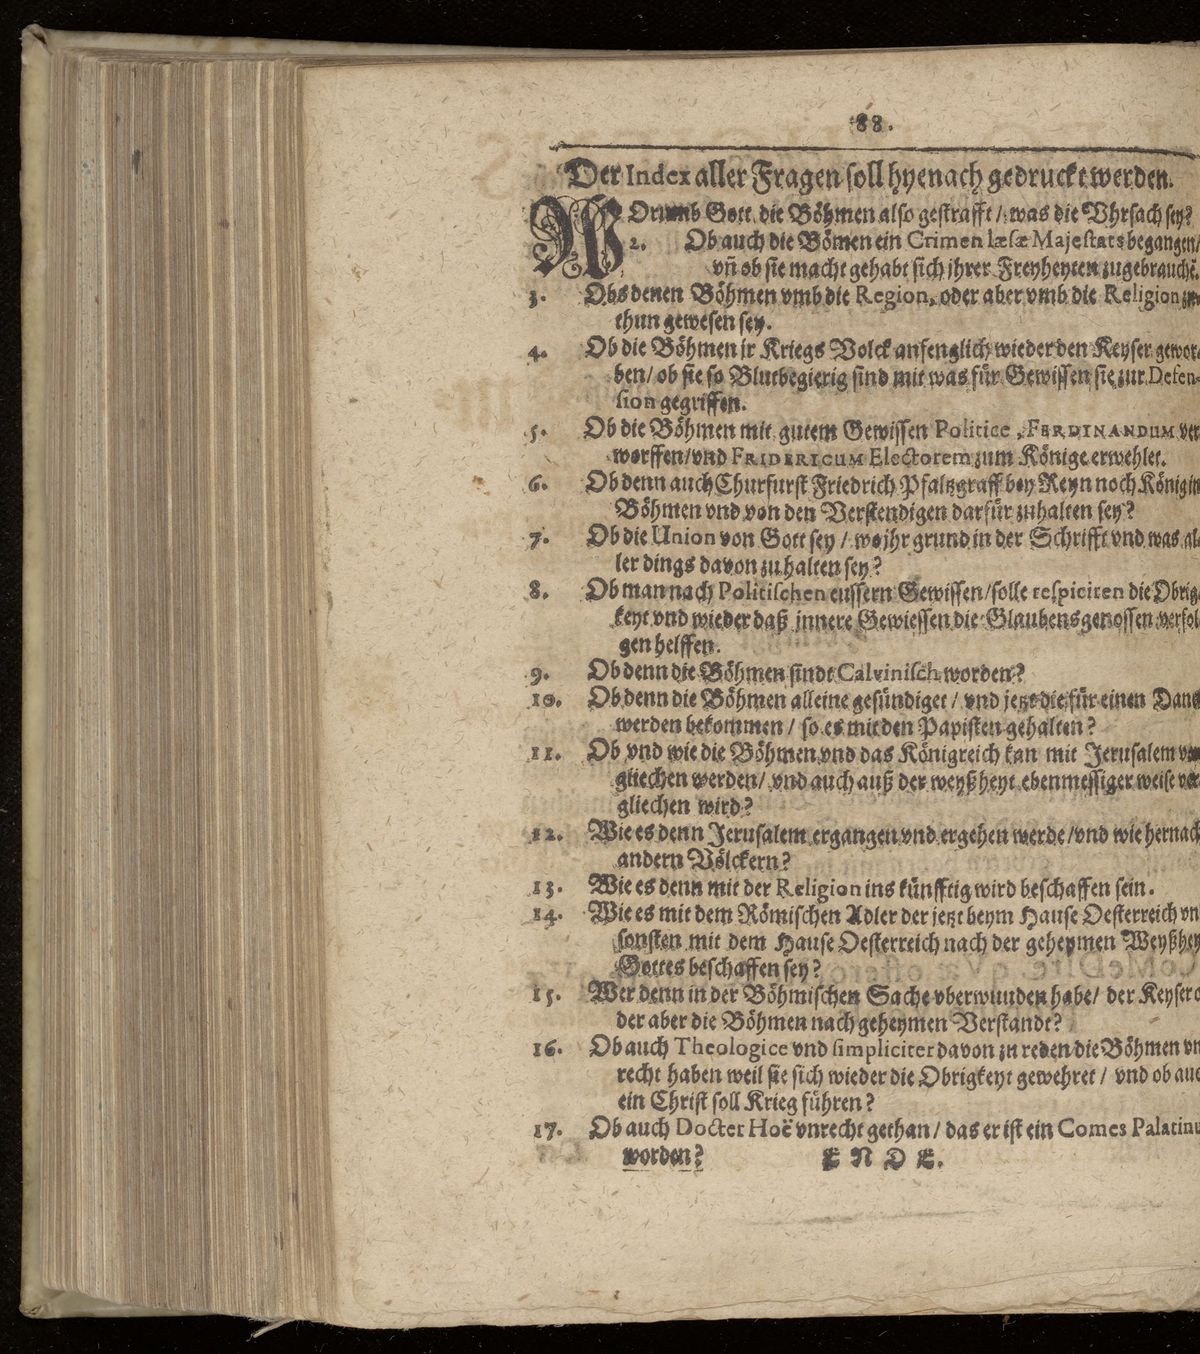 88.
Der Index aller Fragen soll hyenach gedruckt werden.
WOrumb Gott die Böhmen also gestrafft / was die Vhrsach sey?
2. Ob auch die Bömen ein Crimen læsæ Majestats begangen/
vñ ob sie macht gehabt sich jhrer Freyheyten zugebrauchē.
3. Obs denen Böhmen vmb die Region, oder aber vmb die Religion zu
thun gewesen sey.
4. Ob die Böhmen jr Kriegs Volck anfenglich wieder den Keyser gewor-
ben/ ob sie so Blutbegierig sind mit was für Gewissen sie zur Defen-
sion gegriffen.
5. Ob die Böhmen mit gutem Gewissen Politice, FERDINANDUM ver
worffen/vnd FRIDERICUM Electorem zum Könige erwehlet.
6. Ob denn auch Churfurst Friedrich Pfaltzgraff bey Reyn noch König in
Böhmen vnd von den Verstendigen darfür zuhalten sey?
7. Ob die Union von Gott sey / wo jhr grund in der Schrifft vnd was al-
ler dings davon zu halten sey?
8. Ob man nach Politischen eussern Gewissen/solle respiciren die Obrig-
keyt vnd wieder daß innere Gewiessen die Glaubensgenossen verfol
gen helffen.
9. Ob denn die Böhmen sindt Calvinisch worden?
10. Ob denn die Böhmen alleine gesündiget / vnd jetzt die für einen Danck
werden bekommen / so es mit den Papisten gehalten?
11. Ob vnd wie die Böhmen vnd das Königreich kan mit Jerusalem ver
gliechen werden/ vnd auch auß der weyßheyt ebenmessiger weise ver
gliechen wird?
12. Wie es denn Jerusalem ergangen vnd ergehen werde /vnd wie hernach
andern Völckern?
13. Wie es denn mit der Religion ins künfftig wird beschaffen sein.
14. Wie es mit dem Römischen Adler der jetzt beym Hause Oesterreich vn
sonsten mit dem Hause Oesterreich nach der geheymen Weyßhey
Gottes beschaffen sey?
15. Wer denn in der Böhmischen Sache vberwunden habe/ der Keyser o
der aber die Böhmen nach geheymen Verstandt?
16. Ob auch Theologice vnd simpliciter davon zu reden die Böhmen vn
recht haben weil sie sich wieder die Obrigkeyt gewehret / vnd ob auc
ein Christ soll Krieg führen?
17. Ob auch Docter Hoë vnrecht gethan / das er ist ein Comes Palatinu
worden? ENDE.